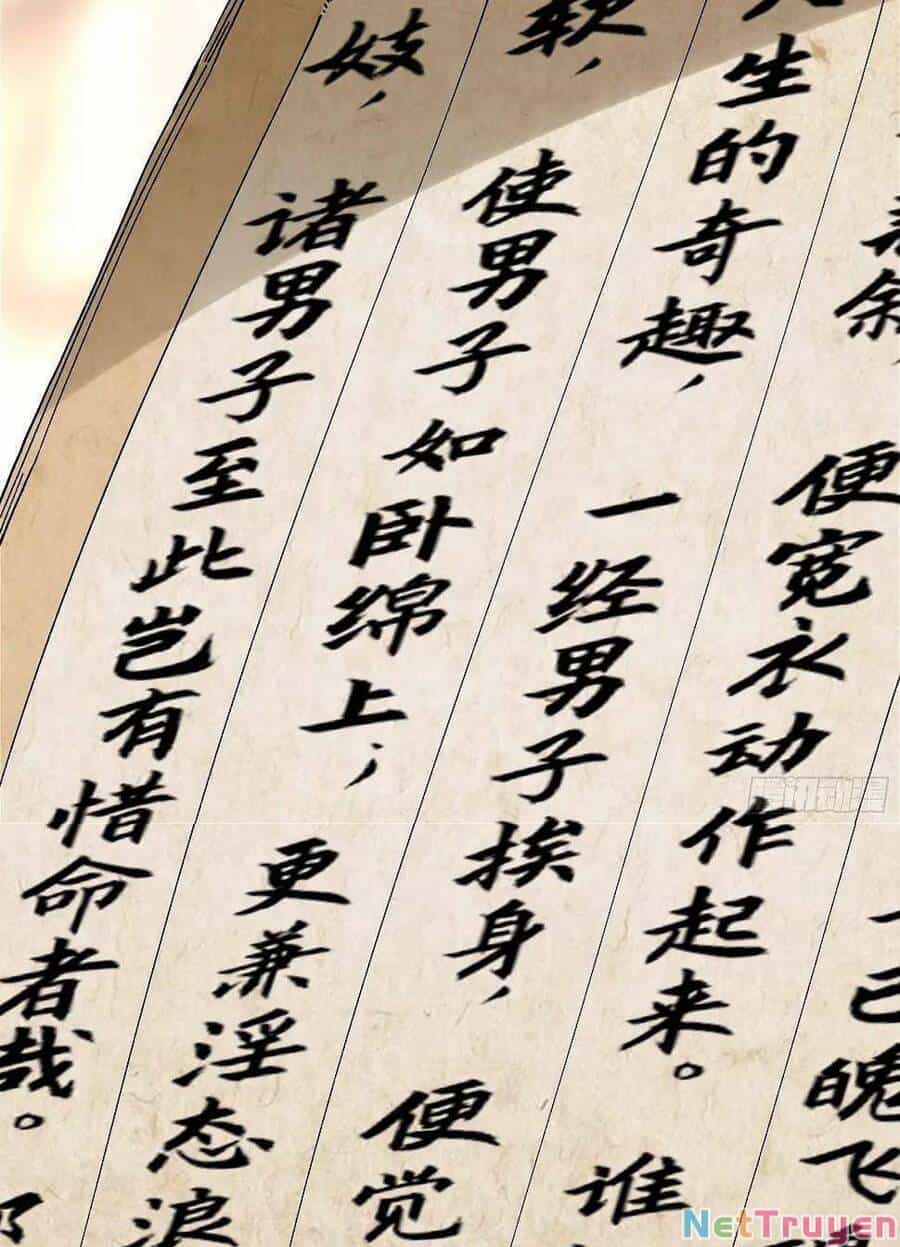 余，
一己魄飞
便宽衣动作起来。谁
生的奇趣，一经男子挨身，便觉
软，使男子如卧绵上；更兼淫态浪
妓，诸男子至此岂有惜命者哉。
腾讯动漫
NetTruyen